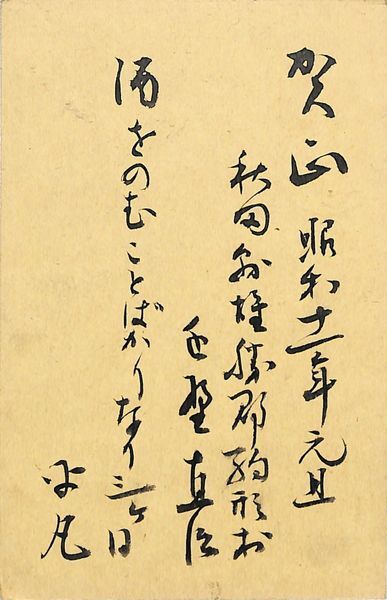 賀正 昭和十一年元旦
秋田県雄勝郡駒形村
野直治
酒をのむことばかりなり三ヶ日
平凡